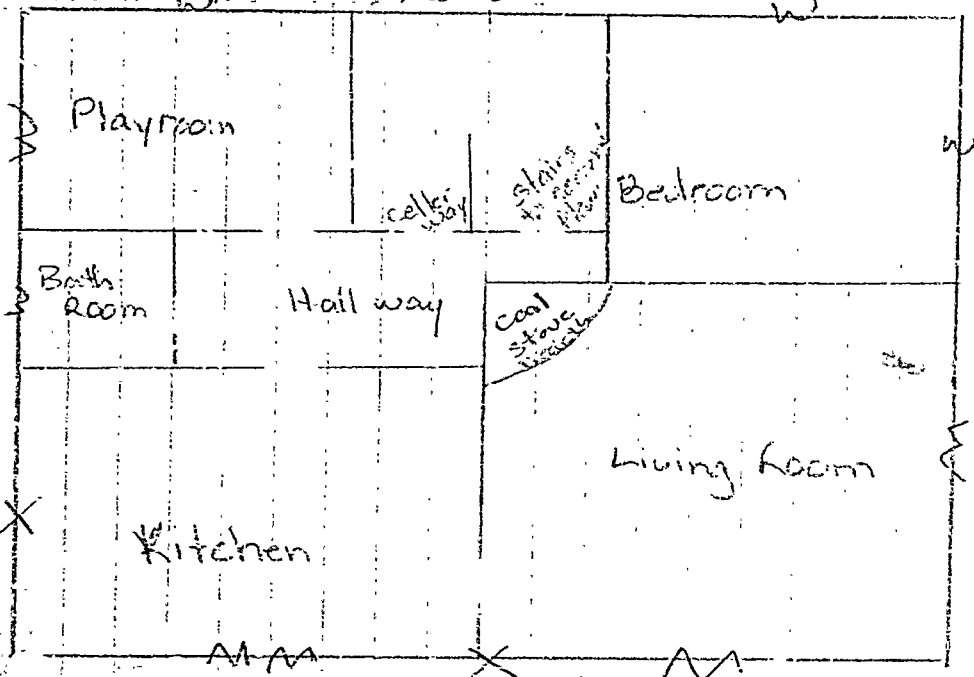 Playroom
cellar
way
stairs
to second
floor
Bedroom
Bath
Room
Hall way
coal
stove
hearth
Living Room
Kitchen